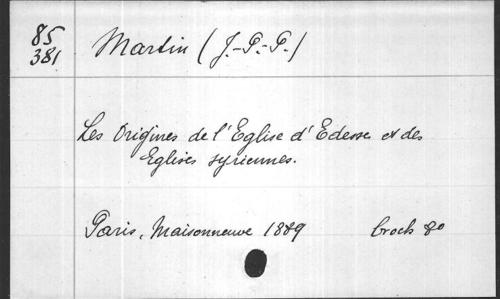 85
381
Martin (J.-P.-P.)
Les Origines de l'Eglise d'Edesse et des
Eglises syriennes.
Paris, Maisonneuve 1889 broch 8o